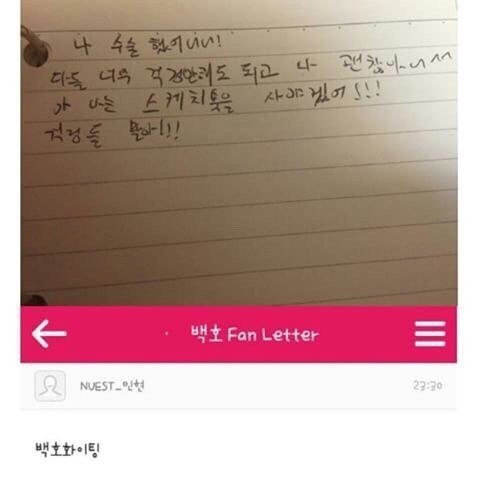 나 수술 했어ㅓㅓ!
다들 너무 걱정안해도 되고 나 괜찮아ㅡㅡ^^
나는 스케치북을 사야겠어!!!
걱정들 말아!!!
백호 Fan Letter
NUEST_민현
23:30
백호화이팅